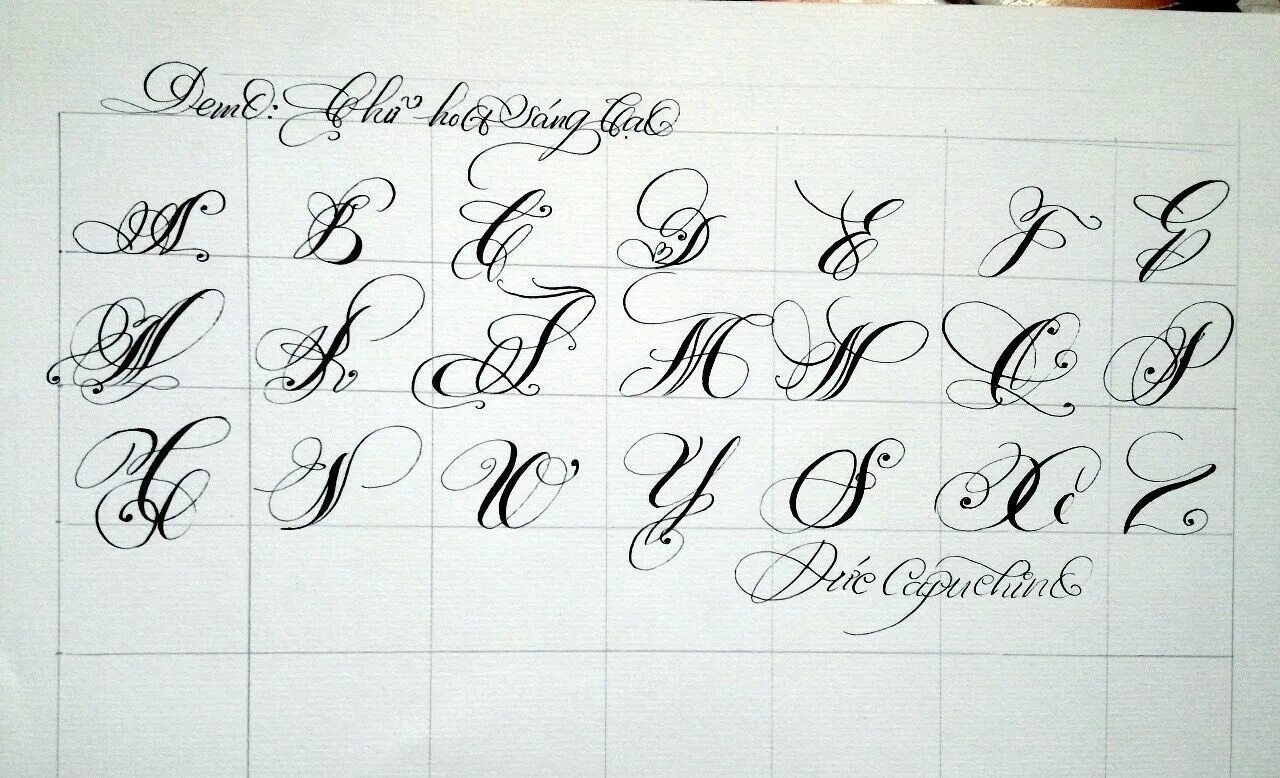 Demo: Chữ hoa sáng tạo
A B C D E F G
H K M N Q P
W Y S X Z
Đức Capuchino